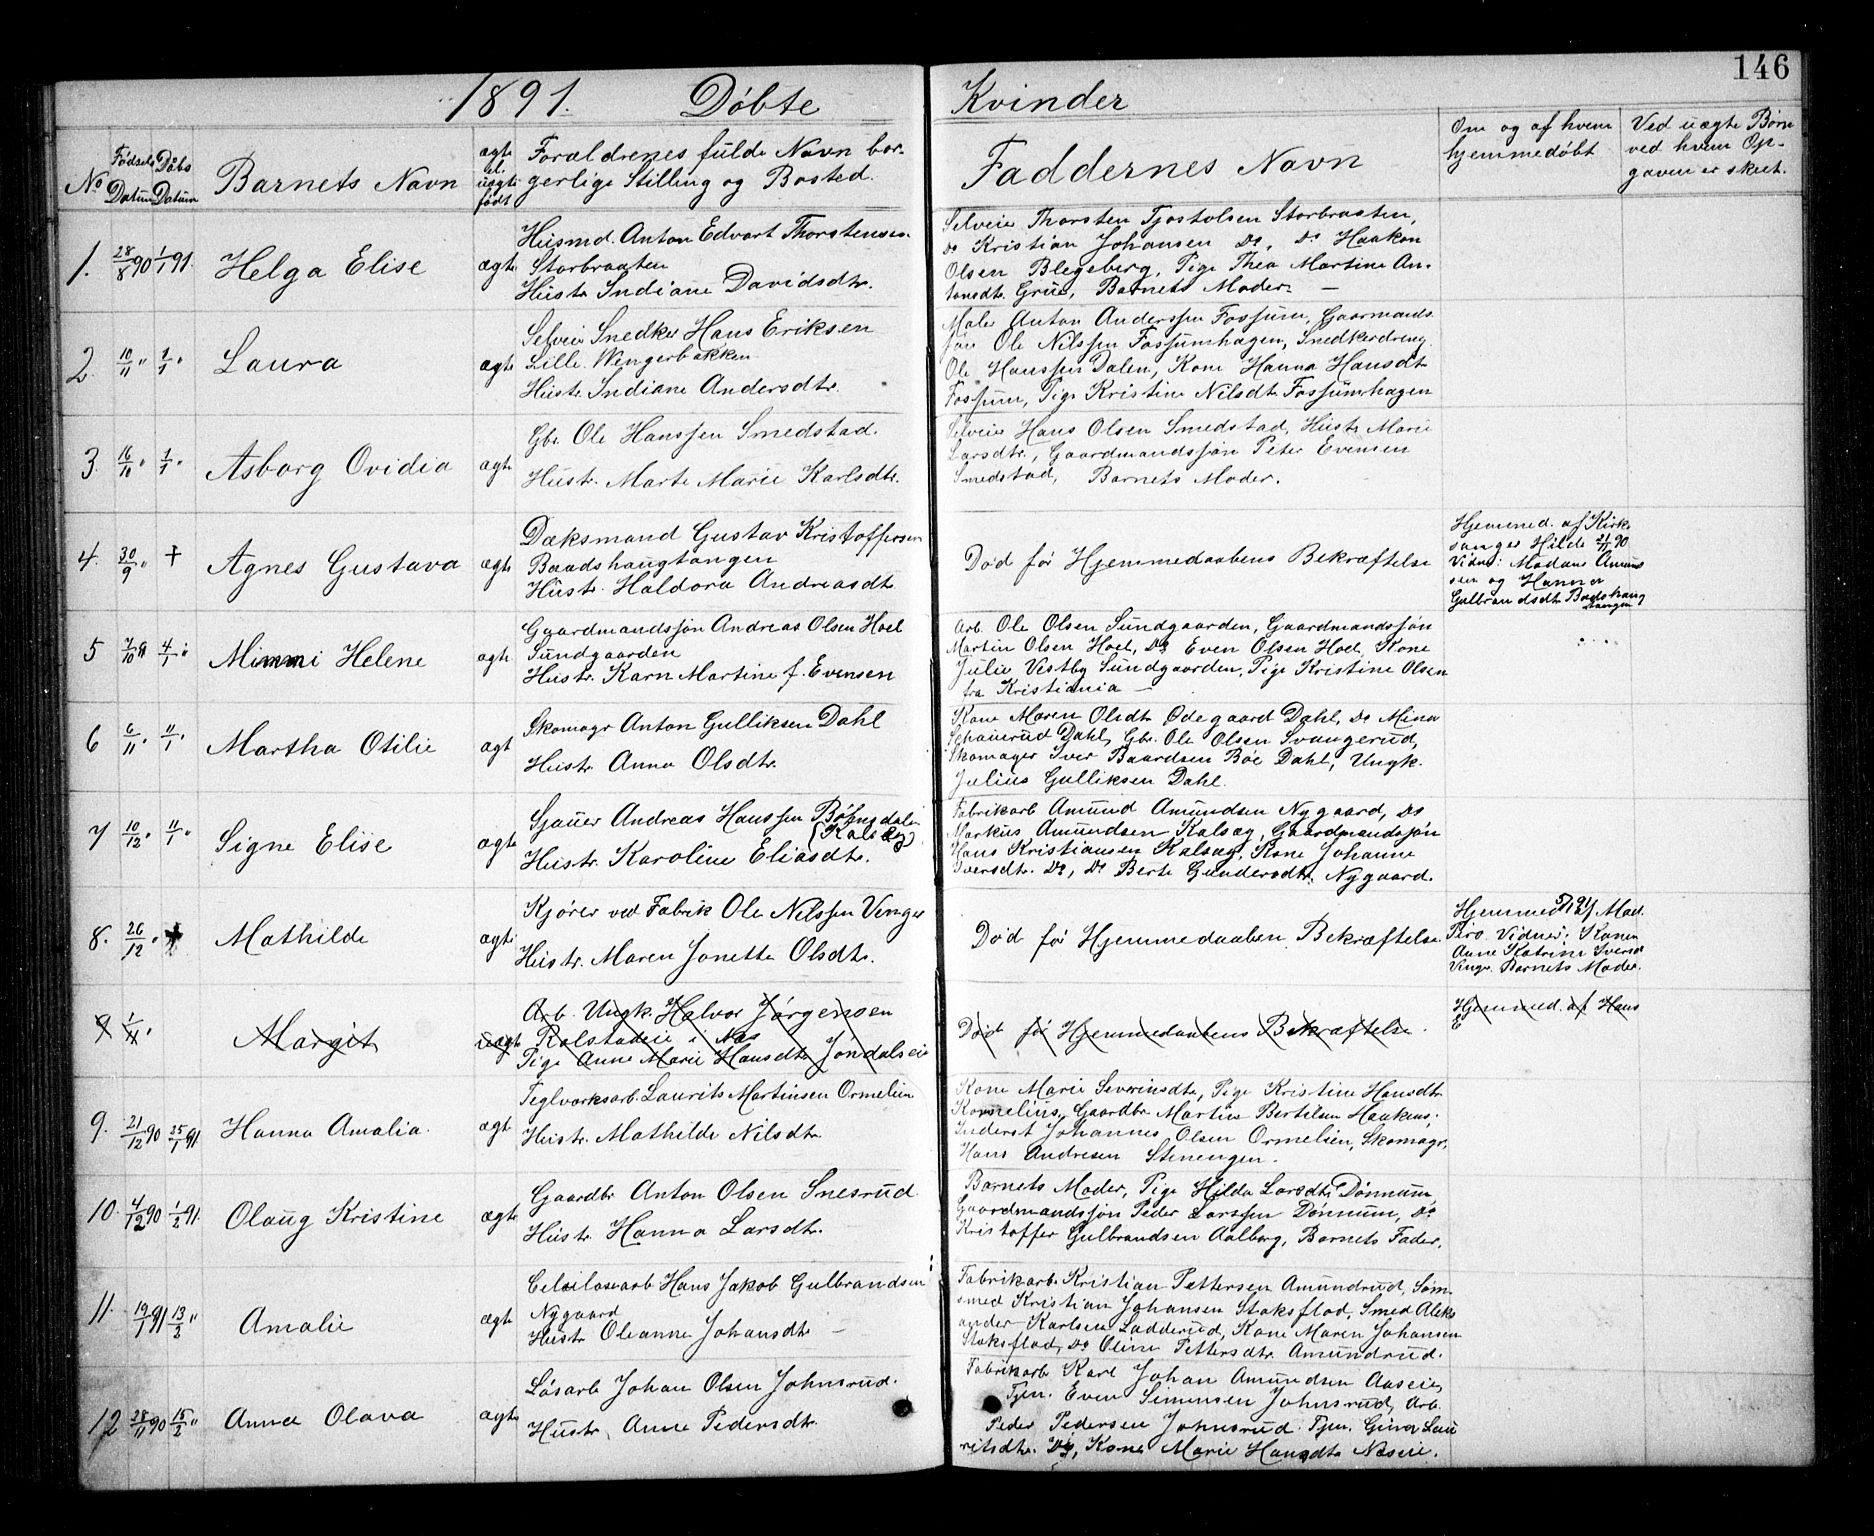 146
1891. Døbte Kvinder
No
Fødsels Datum
Døbs Datum
Barnets Navn
ægte el. uægte født
Forældrenes fulde Navn bor-
gerlige Stilling og Bosted.
Faddernes Navn
Om og af hvem
hjemmedøbt
Ved uægte Børn
ved hvem Op-
gaven er skeet.
1. 28/8 90 1/1 91. Helga Elise ægte
Husmd. Anton Edvart Thorstensen
Storbraaten
Hustr. Indiane Davidsdtr.
Selveier Thorsten Tjostolsen Storbraaten,
Do Kristian Johansen Do, Do Haakon
Olsen Blegeberg, Pige Thea Martine An-
tonsdtr. Grue, Barnets Moder. —
2. 10/11 " 1/1 " Laura ægte
Selveier Snedker Hans Eriksen
Lille Wengerbakken
Hustr. Indiane Andersdtr.
Maler Anton Anderssen Fossum, Gaarmands
søn Ole Nilssen Fossumhagen, Snedkerdreng
Ole Hanssen Dalen, Kone Hanna Hansdtr
Fossum, Pige Kristine Nilsdtr Fossumhagen
3. 16/10 " 1/1 " Asborg Ovidia ægte
Gbr. Ole Hanssen Smedstad.
Hustr. Marte Marie Karlsdtr.
Selveier Hans Olsen Smedstad, Hustr. Marie
Larsdtr., Gaardmandssøn Peter Evensen
Smedstad, Barnets Moder.
4. 30/9 " + Agnes Gustava ægte
Dæksmand Gustav Kristoffersen
Baadshaugtangen
Hustr. Haldora Andreasdtr
Død før Hjemmedaabens Bekræftelse
Hjemmed. af Kirke
sanger Hilde 90
Vidner: Madam Amund
sen og Hanna
Gulbrandsdtr Baadshaug
tangen
5 7/10 " 4/1 " Mimmi Helene ægte
Gaardmandssøn Andreas Olsen Hoel
Sundgaarden
Hustr. Karn Martine f. Evensen
Arb. Ole Olsen Sundgaarden, Gaardmandssøn
Martin Olsen Hoel, Do Even Olsen Hoel, Kone
Julie Vestby Sundgaarden, Pige Kristine Olsen
fra Kristiania —
6 6/11 " 11/1 " Martha Otilie ægt
Skomagr Anton Gulliksen Dahl
Hustr. Anna Olsdtr.
Kone Maren Olsdtr Ødegaard Dahl, Do Mina
Schauerud Dahl, Gbr. Ole Olsen Svangerud,
Skomager Iver Baardsen Bøe Dahl, Ungk.
Julius Gulliksen Dahl.
7 10/12 " 11/1 " Signe Elise ægte
Sjauer Andreas Hanssen Bøhnsdalen
(Kalsæg)
Hustr. Karoline Eliasdtr.
Fabrikarb Amund Amundsen Nygaard, Do
Markus Amundsen Kalsæg, Gaardmandssøn
Hans Kristiansen Kalsæg, Kone Johanne
Iversdtr. Do, Do Berte Gundersdtr. Nygaard.
8. 26/12 " + Mathilde ægte
Kjører ved Fabrik Ole Nilssen Venger
Hustr. Maren Jonette Olsdtr.
Død før Hjemmedaaben Bekræftelse.
Hjemmed af Mad.
Vidner: Konen
Anne Katrine Iversd
Venger. Barnets Moder.
9 1/11 " Margit uægte
Arb. Ungk. Halvor Jørgensen
Rolstadeie i Næs
Pige Anne Marie Hansdtr Jøndalseie
Død før Hjemmedaabens Bekræftelse.
Hjemmed. af Hans
E
9. 21/12 90 25/1 91. Hanna Amalia. ægt
Teglværksarb. Laurits Martinsen Ormelien
Hustr. Mathilde Nilsdtr.
Kone Marie Severinsdtr, Pige Kristine Hansdtr
Kornelius, Gaardbr Martin Bertilsen Haakens,
Inderst Johannes Olsen Ormelien, Skomagr.
Hans Andresen Stenengen.
10. 4/12 90 1/2 91. Olaug Kristine ægte
Gaardbr Anton Olsen Snesrud
Hustr. Hanna Larsdtr.
Barnets Moder, Pige Hilda Larsdtr Dønnum,
Gaardmandssøn Peder Larssen Dønnum, Do
Kristoffer Gulbrandsen Aalborg, Barnets Fader.
11. 19/1 91 13/2 " Amalie ægte
Celulosearb Hans Jakob Gulbrandsen
Nygaard
Hustr Oleanne Johansdtr —
Fabrikarb. Kristian Pettersen Amundrud, Søm-
smed Kristian Johansen Stoksflod, Smed Aleks
ander Karlsen Ladderud, Kone Maren Johansen
Stoksflod, Do Oline Pettersdtr. Amundrud.
12 28/11 90 15/2 " Anna Olava ægte
Løsarb Johan Olsen Johnsrud.
Hustr. Anne Pedersdtr.
Fabrikarb Karl Johan Amundsen Aaseie,
Tjen. Even Simensen Johnsrud, Arb.
Peder Pedersen Johnsrud. Tjen. Gina Lau
ritsdtr. Do, Kone Marie Hansdtr Næseie.